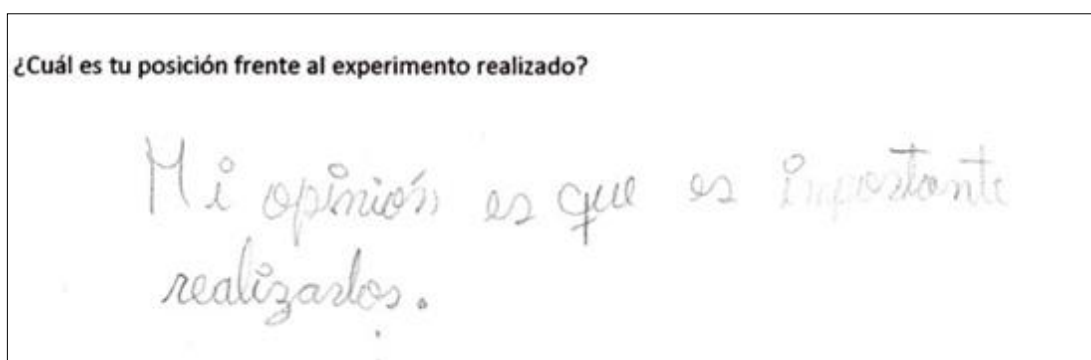 ¿Cuál es tu posición frente al experimento realizado?
Mi opinión es que es importante
realizarlos.